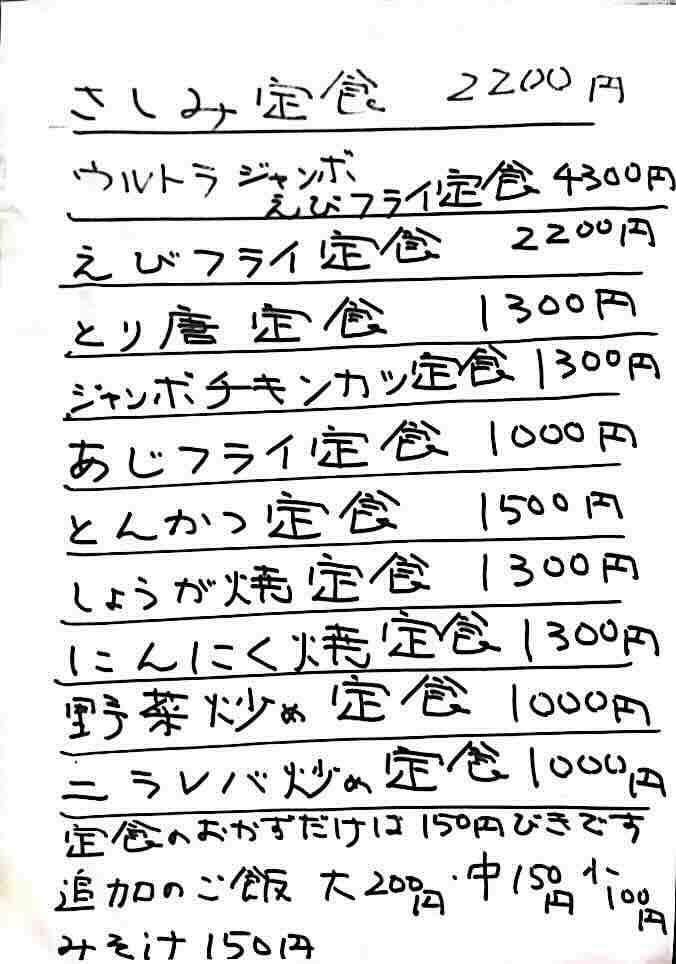 さしみ定食 2200円
ウルトラジャンボ
えびフライ定食 4300円
えびフライ定食 2200円
とり唐定食 1300円
ジャンボチキンカツ定食 1300円
あじフライ定食 1000円
とんかつ定食 1500円
しょうが焼定食 1300円
にんにく焼定食 1300円
野菜炒め定食 1000円
ニラレバ炒め定食 1000円
定食のおかずだけは150円びきです
追加のご飯 大200円・中150円 小100円
みそ汁 150円